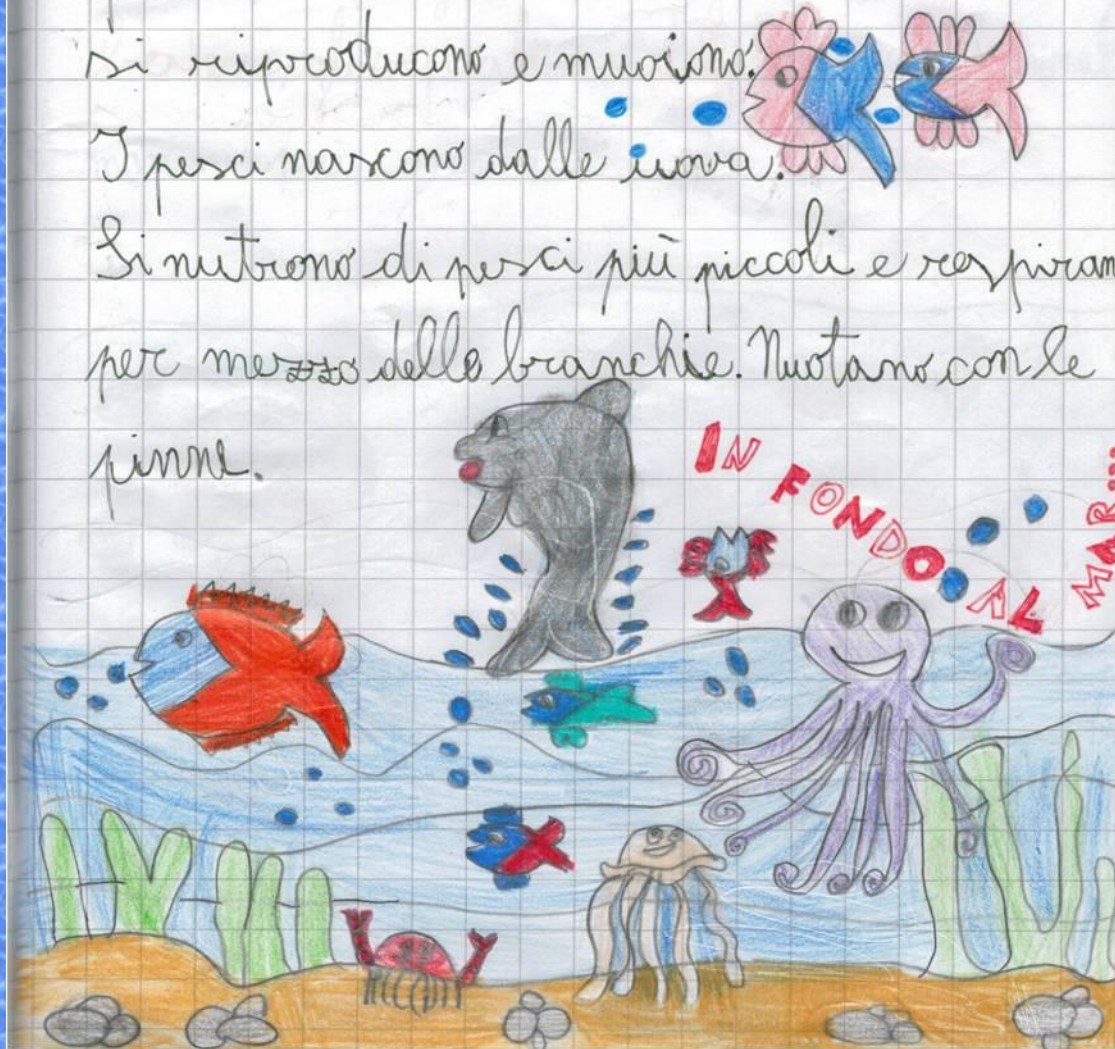 si riproducono e muoiono.
I pesci nascono dalle uova.
Si nutrono di pesci più piccoli e respiran
per mezzo delle branchie. Nuotano con le
pinne.
IN FONDO AL MAR...